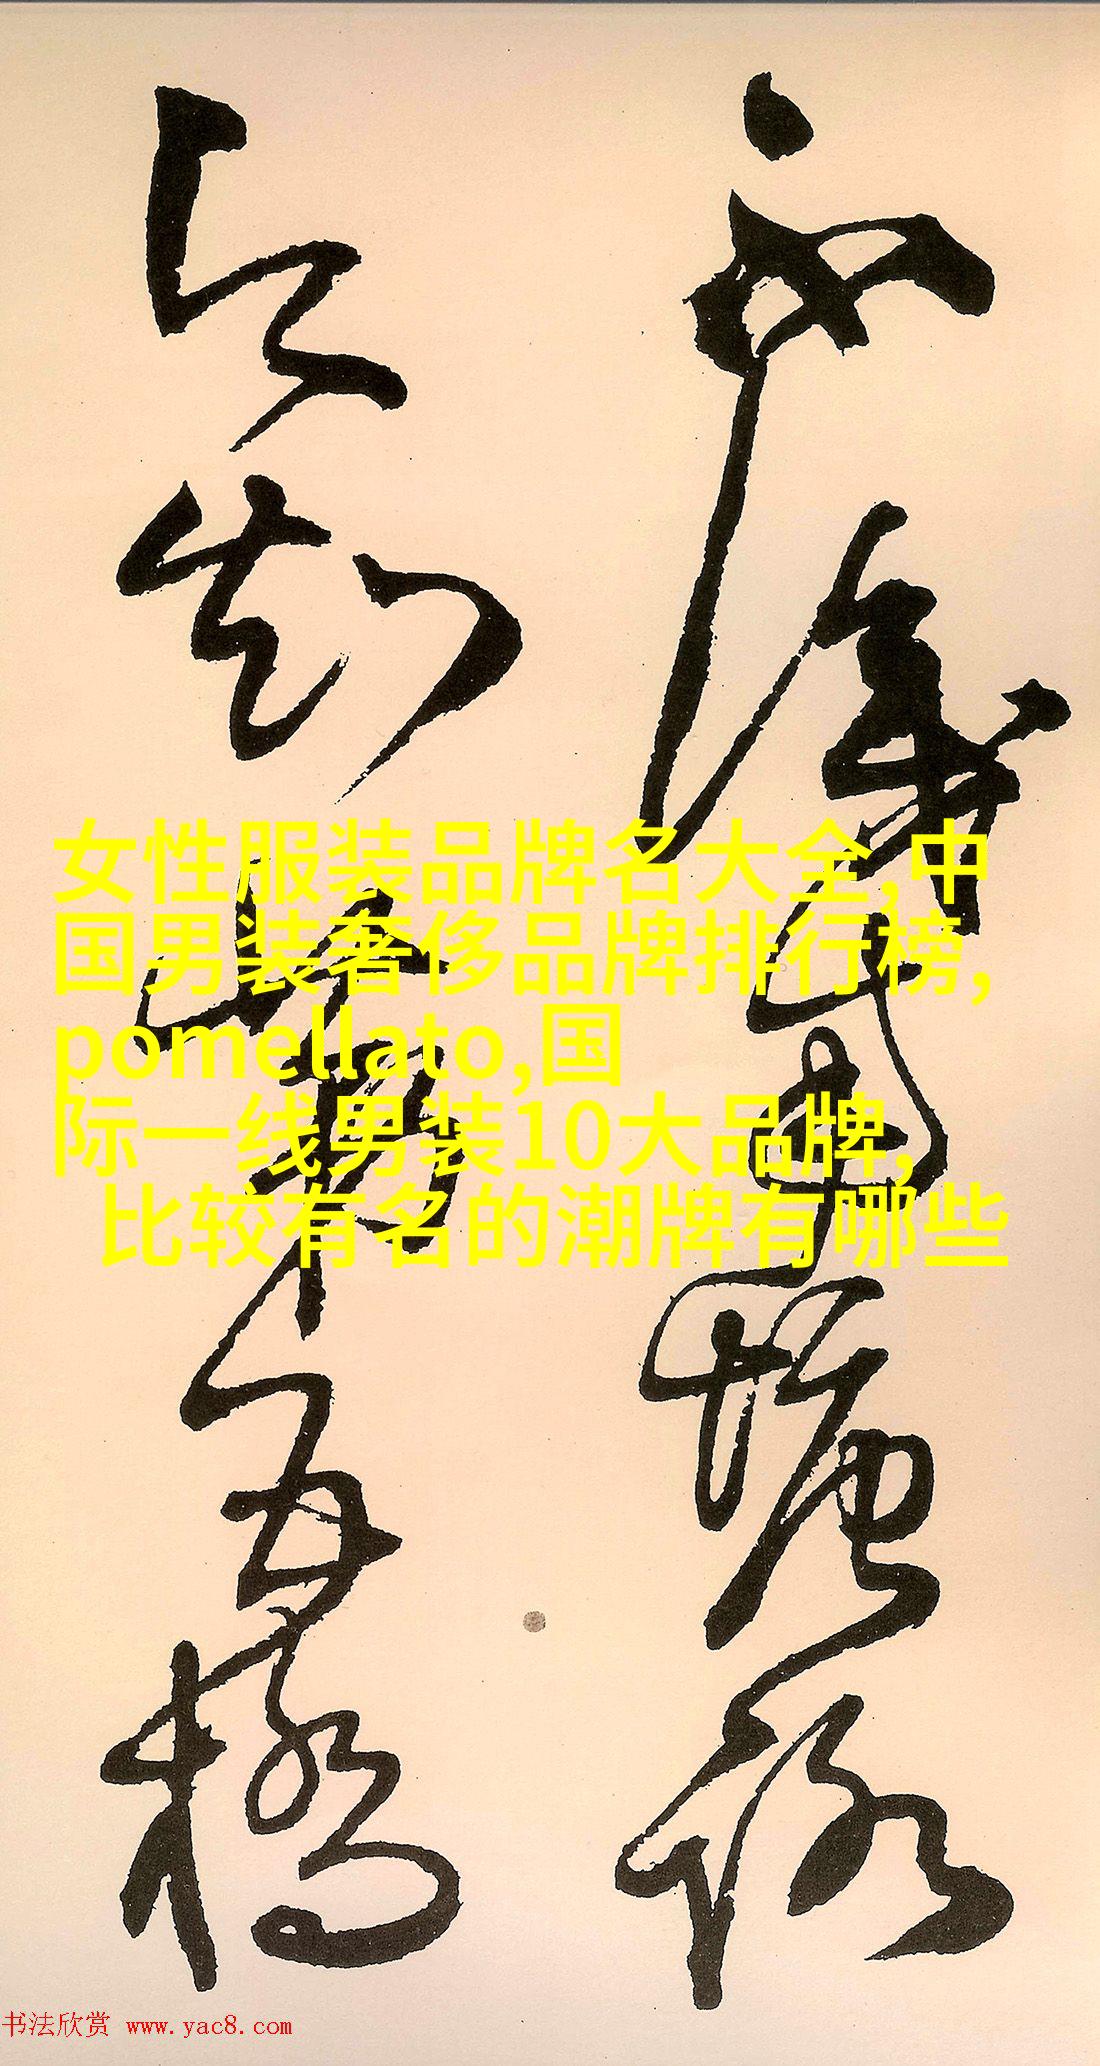 不識南塘路
今知第五橋
女性服装品牌名大全,中
国男装奢侈品牌排行榜,
pomellato,国
际一线男装10大品牌,
比较有名的潮牌有哪些
书法欣赏 www.yac8.com